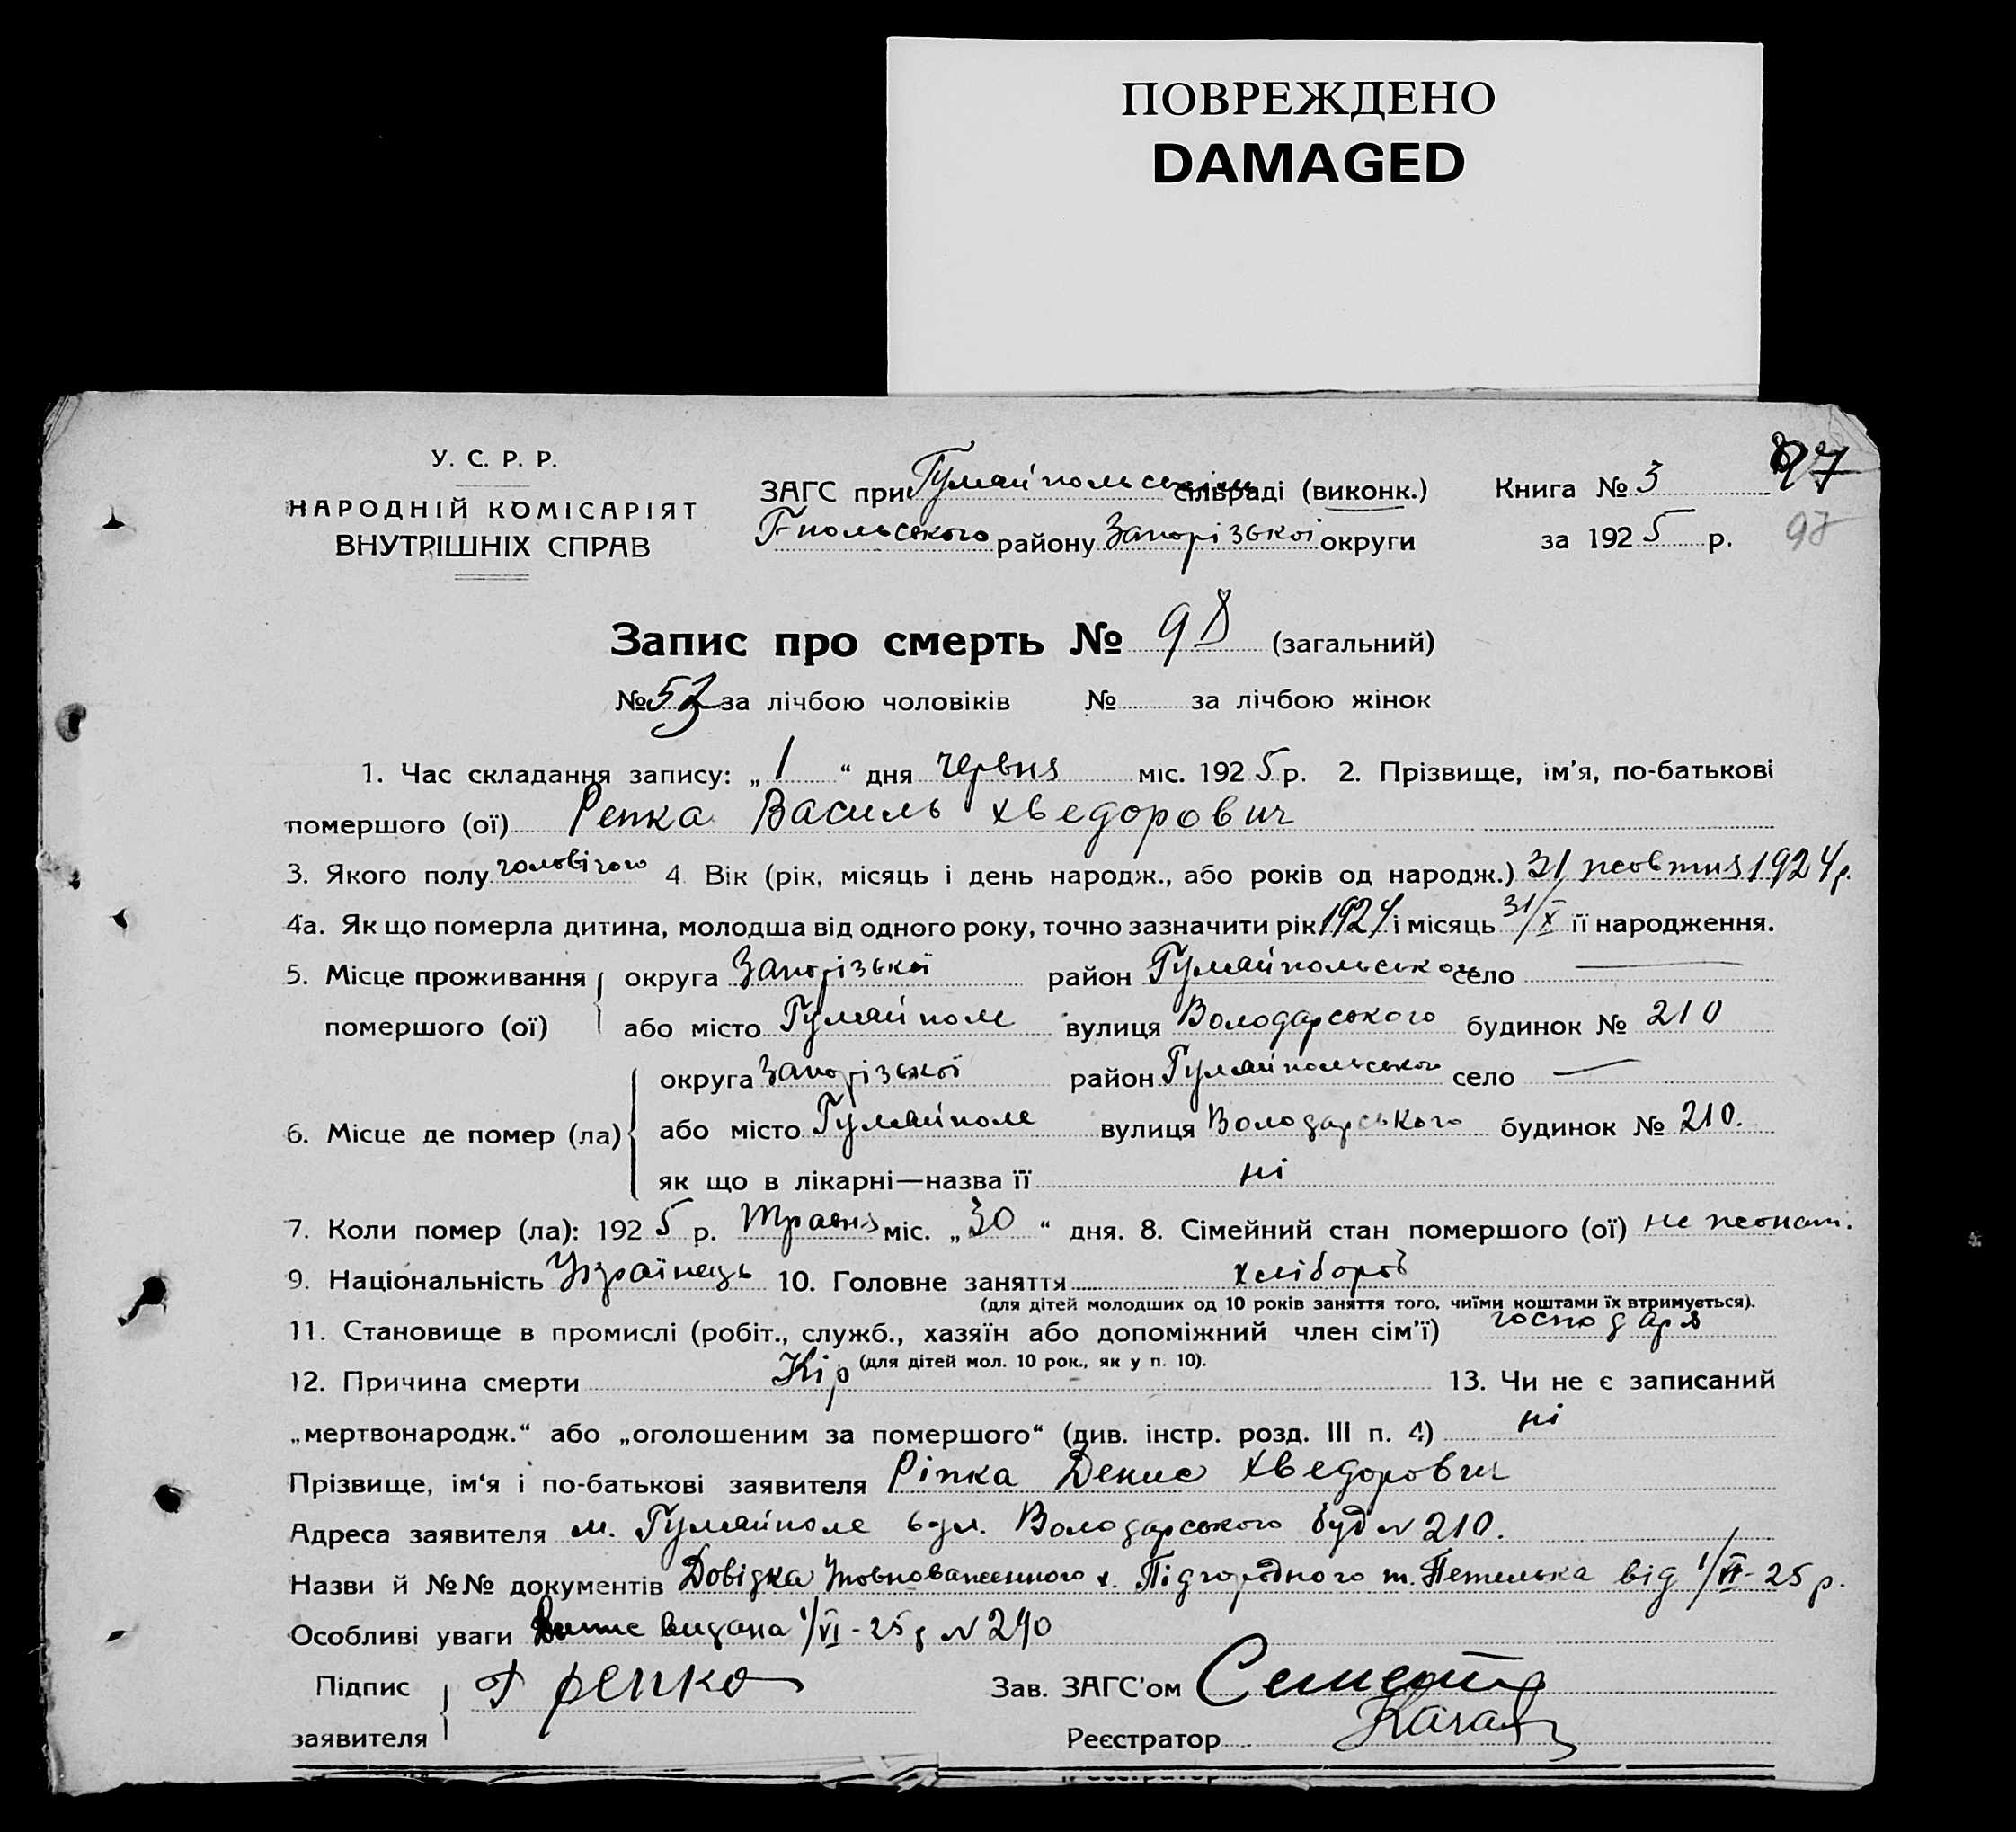 ПОВРЕЖДЕНО
DAMAGED
У. С. Р. Р.
НАРОДНІЙ КОМІСАРІЯТ
ВНУТРІШНІХ СПРАВ
ЗАГС при Гуляйпольськім сільраді (виконк.)
Г-польського району Запорізької округи
Книга № 3
за 1925 р.
97
98
Запис про смерть № 98 (загальний)
№ 53 за лічбою чоловіків № за лічбою жінок
1. Час складання запису: „1“ дня червня міс. 1925 р. 2. Прізвище, ім'я, по-батькові
помершого (ої) Репка Василь Хведорович
3. Якого полу чоловічого 4 Вік (рік, місяць і день народж., або років од народж.) 31 жовтня 1924 р.
4а. Як що померла дитина, молодша від одного року, точно зазначити рік 1924 і місяць 31/X її народження.
5. Місце проживання округа Запорізької район Гуляйпольського село —
помершого (ої) або місто Гуляйполе вулиця Володарського будинок № 210
округа Запорізької район Гуляйпольського село —
6. Місце де помер (ла) або місто Гуляйполе вулиця Володарського будинок № 210.
як що в лікарні—назва її ні
7. Коли помер (ла): 1925 р. Травня міс. „30“ дня. 8. Сімейний стан помершого (ої) не жонат.
9. Національність Українець 10. Головне заняття хлібороб
(для дітей молодших од 10 років заняття того, чиїми коштами їх втримується).
11. Становище в промислі (робіт., служб., хазяїн або допоміжний член сім'ї) господаря
(для дітей мол. 10 рок., як у п. 10).
12. Причина смерти Кір 13. Чи не є записаний
„мертвонародж.“ або „оголошеним за помершого“ (див. інстр. розд. III п. 4) ні
Прізвище, ім'я і по-батькові заявителя Ріпка Денис Хведорович
Адреса заявителя м. Гуляйполе вул. Володарського буд N 210.
Назви й №№ документів Довідка Уповноваженного х. Підгородного т. Петелька від 1/VI-25 р.
Особливі уваги видана 1/VI-25 р N 290
Підпис
заявителя
Репко
Зав. ЗАГС'ом
Реєстратор